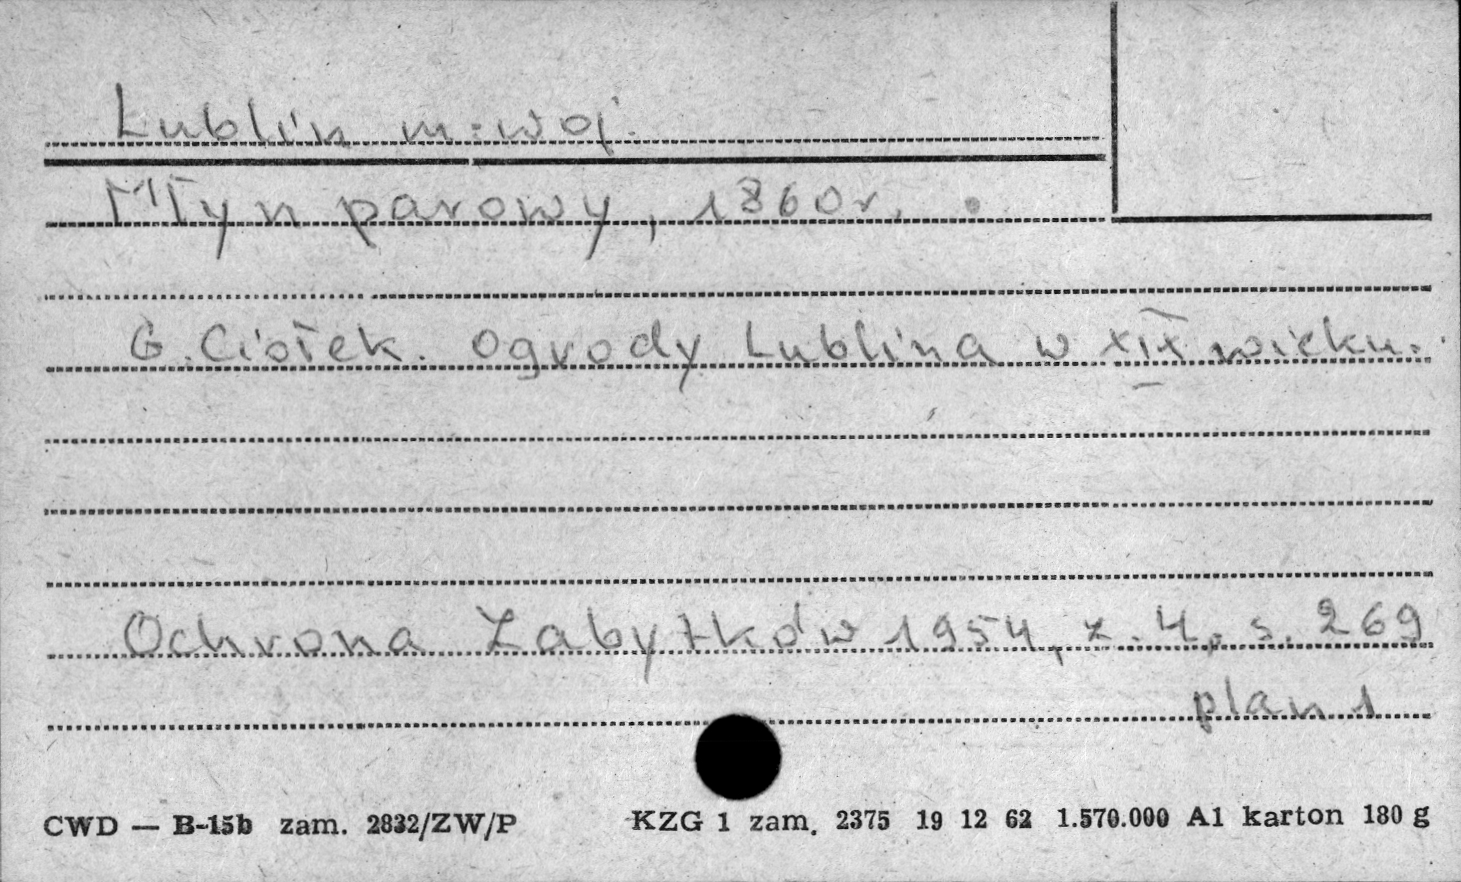 Lublin m. woj.
Młyn parowy, 1860 r.
G. Ciołek. Ogrody Lublina w XIX wieku.
Ochrona Zabytków 1954, z. 4, s. 269
plan 1
CWD — B-15b zam. 2832/ZW/P KZG 1 zam. 2375 19 12 62 1.570.000 A1 karton 180 g